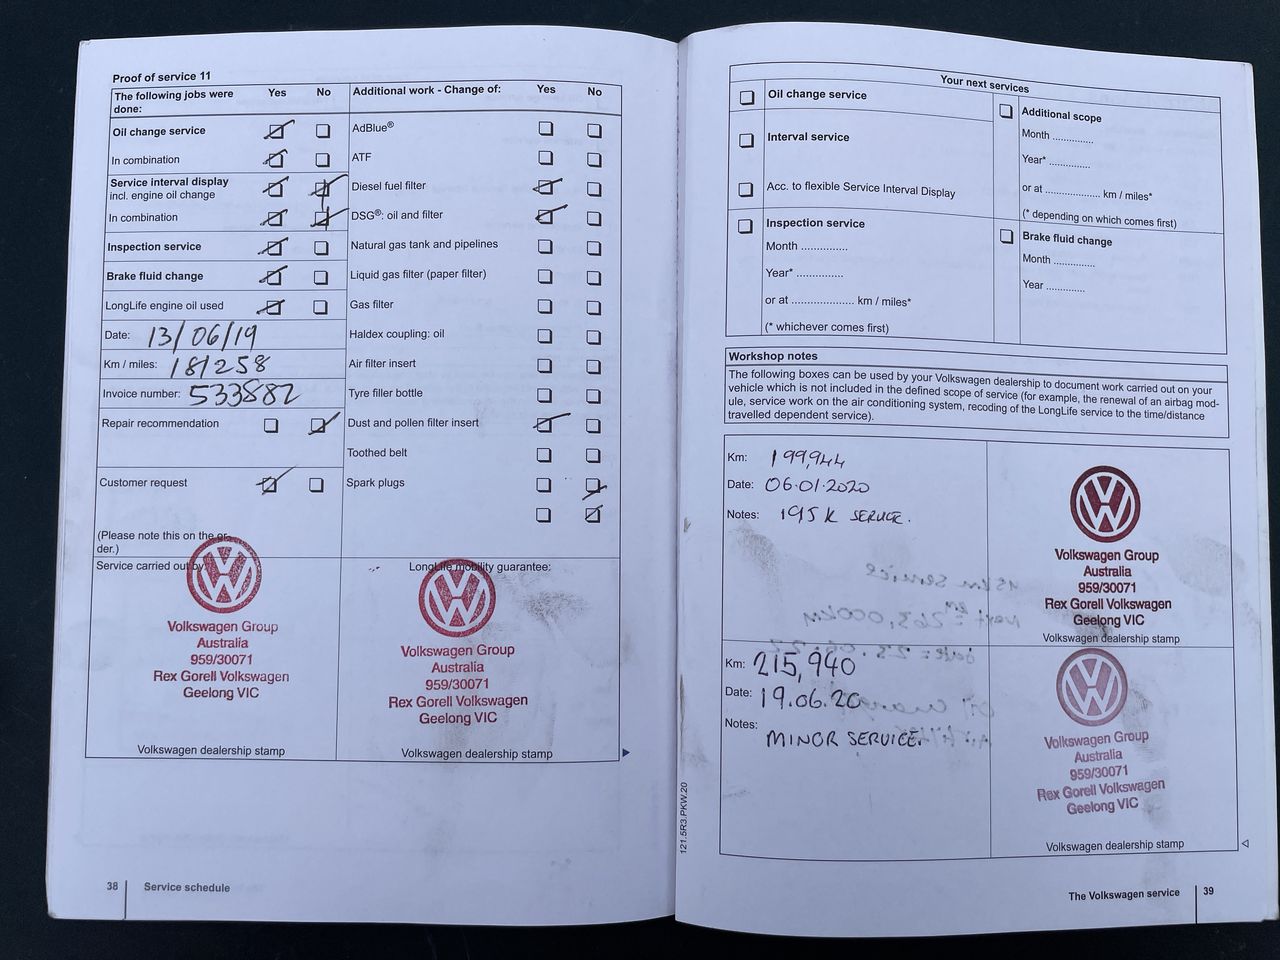 Proof of service 11
The following jobs were done: Yes No
Oil change service
In combination
Service interval display
incl. engine oil change
In combination
Inspection service
Brake fluid change
LongLife engine oil used
Date: 13/06/19
Km / miles: 181258
Invoice number: 533882
Repair recommendation
Customer request
(Please note this on the or-
der.)
Additional work - Change of: Yes No
AdBlue®
ATF
Diesel fuel filter
DSG®: oil and filter
Natural gas tank and pipelines
Liquid gas filter (paper filter)
Gas filter
Haldex coupling: oil
Air filter insert
Tyre filler bottle
Dust and pollen filter insert
Toothed belt
Spark plugs
Service carried out by:
Volkswagen Group
Australia
959/30071
Rex Gorell Volkswagen
Geelong VIC
Volkswagen dealership stamp
LongLife mobility guarantee:
Volkswagen Group
Australia
959/30071
Rex Gorell Volkswagen
Geelong VIC
Volkswagen dealership stamp
38 Service schedule
Your next services
Oil change service
Interval service
Acc. to flexible Service Interval Display
Inspection service
Month ...............
Year* ...............
or at .................... km / miles*
(* whichever comes first)
Additional scope
Month .............
Year* .............
or at .................... km / miles*
(* depending on which comes first)
Brake fluid change
Month .............
Year .............
Workshop notes
The following boxes can be used by your Volkswagen dealership to document work carried out on your
vehicle which is not included in the defined scope of service (for example, the renewal of an airbag mod-
ule, service work on the air conditioning system, recoding of the LongLife service to the time/distance
travelled dependent service).
Km: 199,944
Date: 06.01.2020
Notes: 195K SERVICE.
Volkswagen Group
Australia
959/30071
Rex Gorell Volkswagen
Geelong VIC
Volkswagen dealership stamp
Km: 215,940
Date: 19.06.20
Notes:
MINOR SERVICE.
Volkswagen Group
Australia
959/30071
Rex Gorell Volkswagen
Geelong VIC
Volkswagen dealership stamp
121.5R3.PKW.20
The Volkswagen service 39